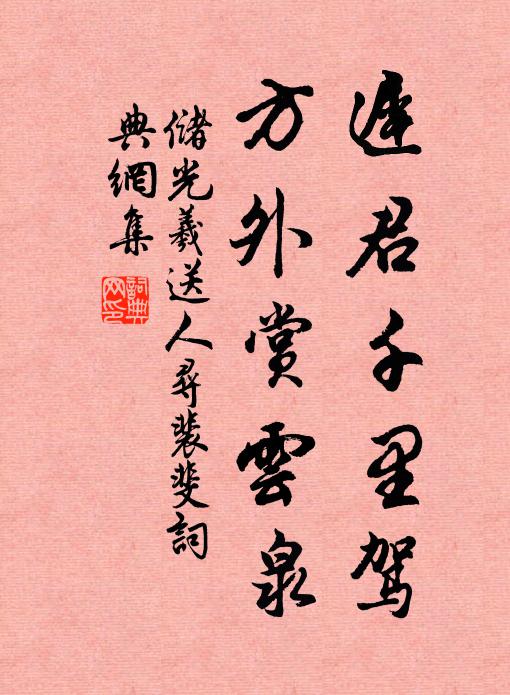 遲君千里駕
方外賞雲泉
儲光羲送人尋裴斐詞
典網集
詞典
网印